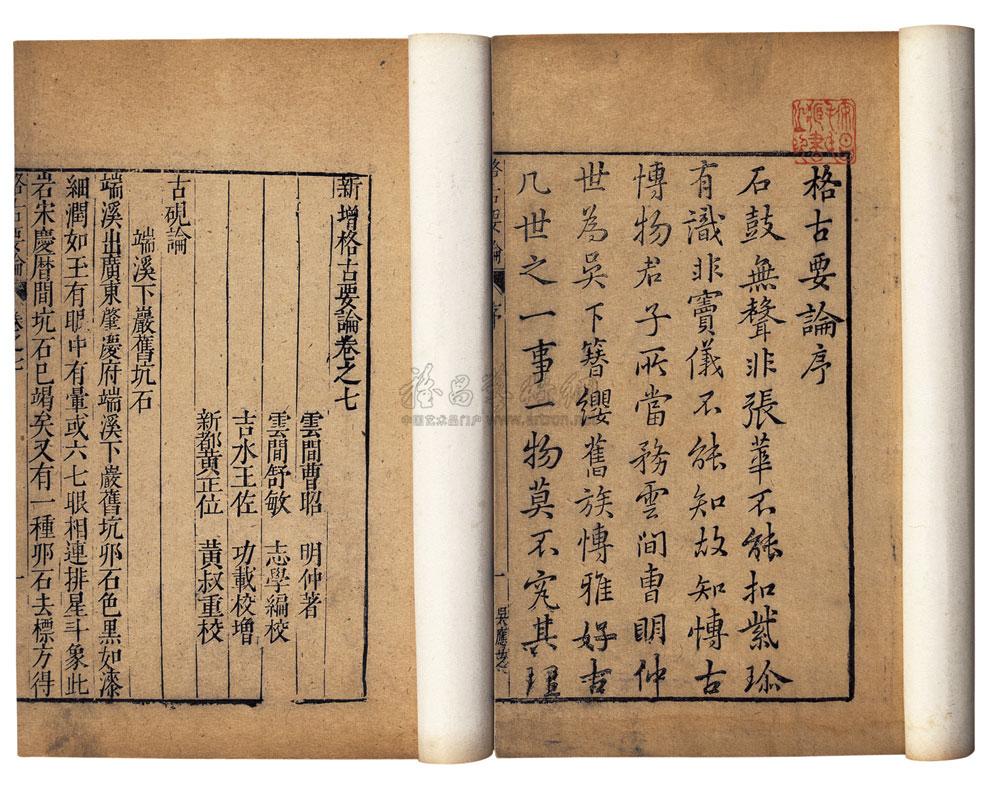 格古要論序
石鼓無聲非張華不能扣紫珍
有識非竇儀不能知故知愽古
愽物君子所當務雲間曺明仲
世為吳下簪纓舊族愽雅好古
凡世之一事一物莫不究其理
格古要論 序 一
新增格古要論卷之七
雲間曹昭 明仲著
雲間舒敏 志學編校
吉水王佐 功載校增
新都黃正位 黃叔重校
古硯論
端溪下巖舊坑石
端溪出廣東肇慶府端溪下巖舊坑卵石色黑如漆
細潤如玉有眼中有暈或六七眼相連排星斗象此
岩宋慶曆間坑石已竭矣又有一種卵石去標方得
格古要論 卷之七 一
中国艺术品门户